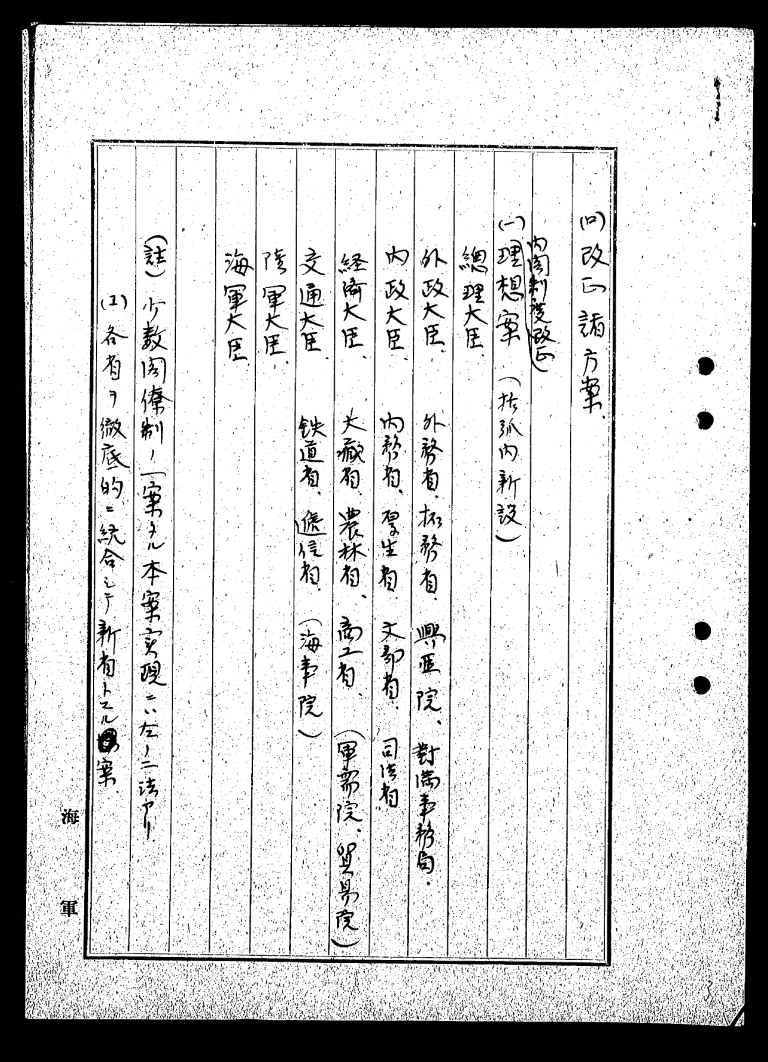 (ロ) 改正諸方案、
内閣制度改正
(一) 理想案 (括弧内新設)
總理大臣
外政大臣、 外務省、拓務省、興亜院、対満事務局、
内政大臣、 内務省、厚生省、文部省、司法省
経済大臣、 大蔵省、農林省、商工省、(軍需院、貿易院)
交通大臣、 鉄道省、逓信省、(海事院)
陸軍大臣、
海軍大臣、
(註) 少数閣僚制ノ一案ナル本案実現ニハ左ノ二法アリ
(I) 各省ヲ徹底的ニ統合シテ新省トスル案
海軍